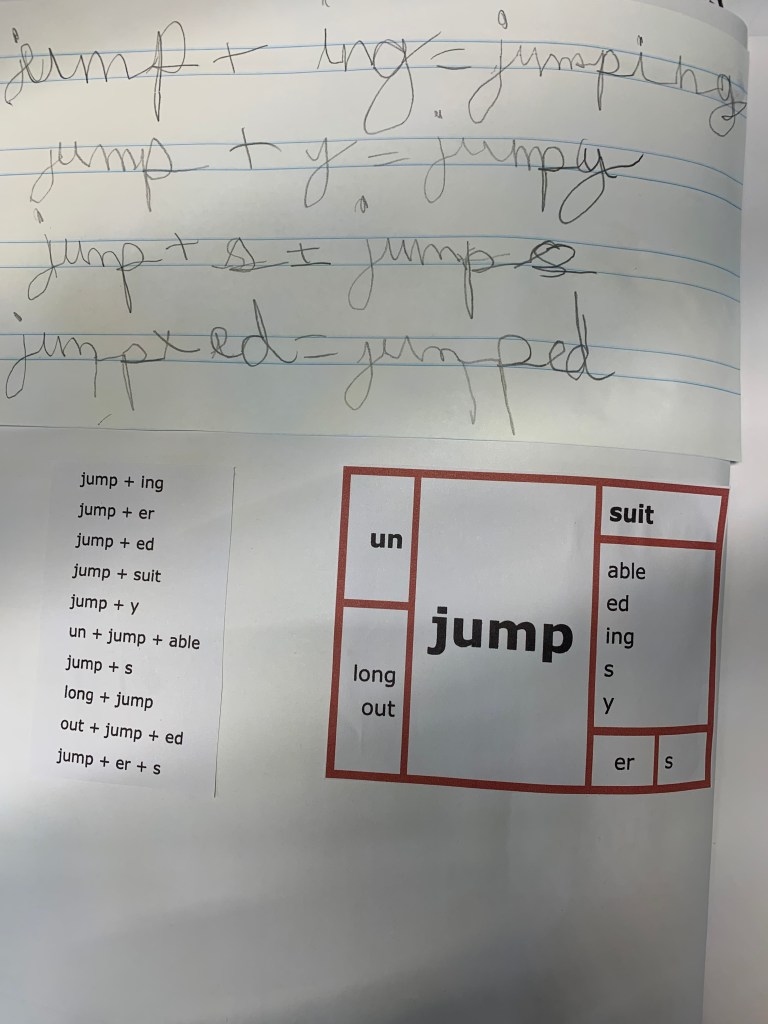 jump + ing = jumping
jump + y = jumpy
jump + s = jumps
jump + ed = jumped
jump + ing
jump + er
jump + ed
jump + suit
jump + y
un + jump + able
jump + s
long + jump
out + jump + ed
jump + er + s
un
long
out
jump
suit
able
ed
ing
s
y
er s